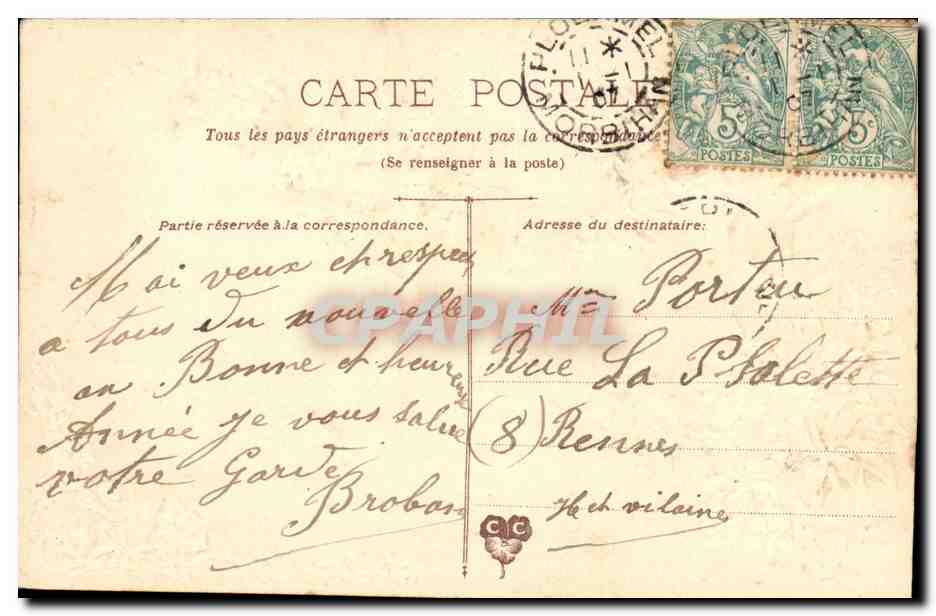 CARTE POSTALE
Tous les pays étrangers n'acceptent pas la correspondance
(Se renseigner à la poste)
PLOERMEL
MORBIHAN
5c
POSTES
5c
POSTES
Partie réservée à la correspondance.
Mai veux et respec
a tous du nouvelle
an Bonne et heureuse
Année je vous salue
votre Garde
Adresse du destinataire:
Mme
Rue La
(8) Rennes
et vilaine
CC
CPAPHIL